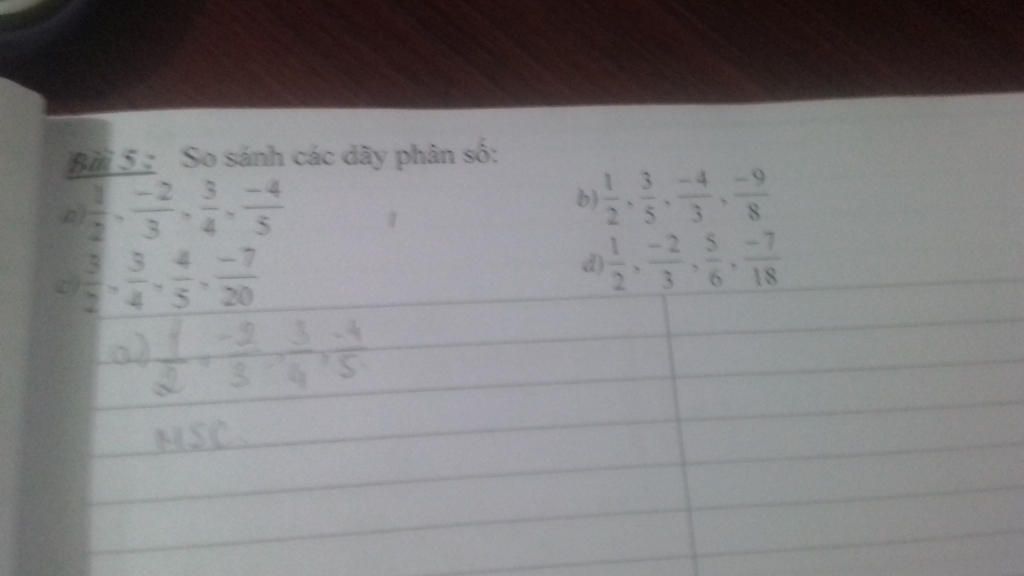 Bài 5 : So sánh các dãy phân số:
a) 1/2, -2/3, 3/4, -4/5 b) 1/2, 3/5, -4/3, -9/8
c) 3/2, 3/4, 4/5, -7/20 d) 1/2, -2/3, 5/6, -7/18
a) 1/2, -2/3, 3/4, -4/5
MSC